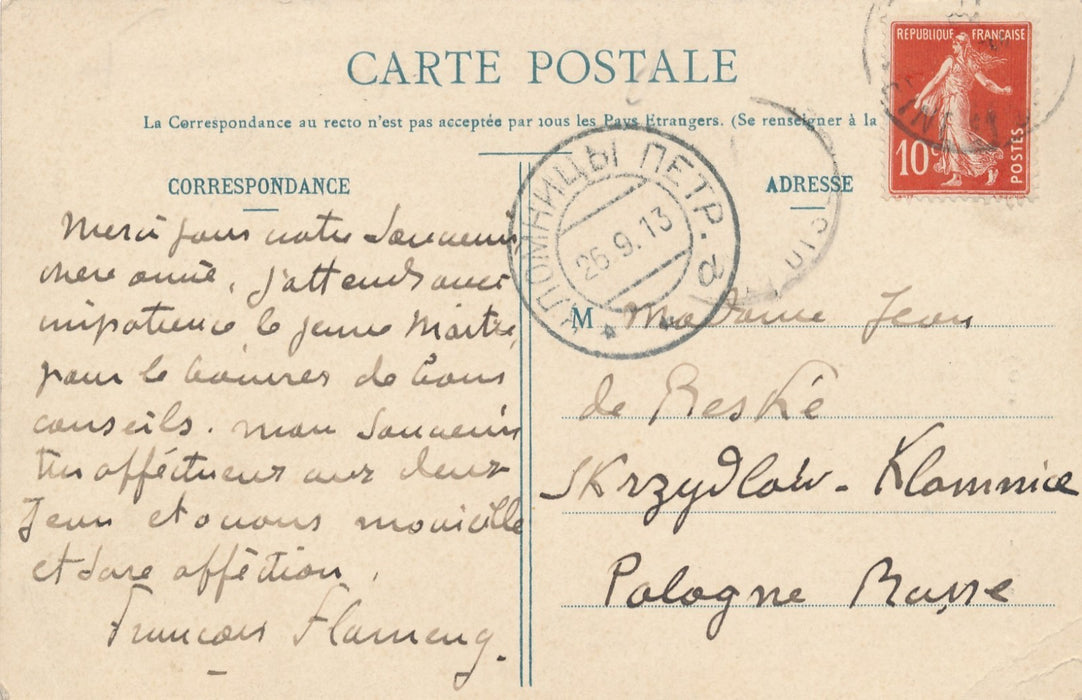 CARTE POSTALE
La Correspondance au recto n'est pas acceptée par tous les Pays Etrangers. (Se renseigner à la
CORRESPONDANCE
Merci pour votre Souvenir
chere amie, j'attends avec
impatience le jeune Maitre,
pour le de bons
conseils. mon Souvenir
très afféctueux aux deux
Jean et à vous ma vieille
et sure afféction.
François Flameng.
ADRESSE
REPUBLIQUE FRANÇAISE
10c
POSTES
КЛОМНИЦЫ ПЕТР. Г.
26.9.13
M Madame Jean
de Reské
Skrzydlow - Klomnice
Pologne Russe